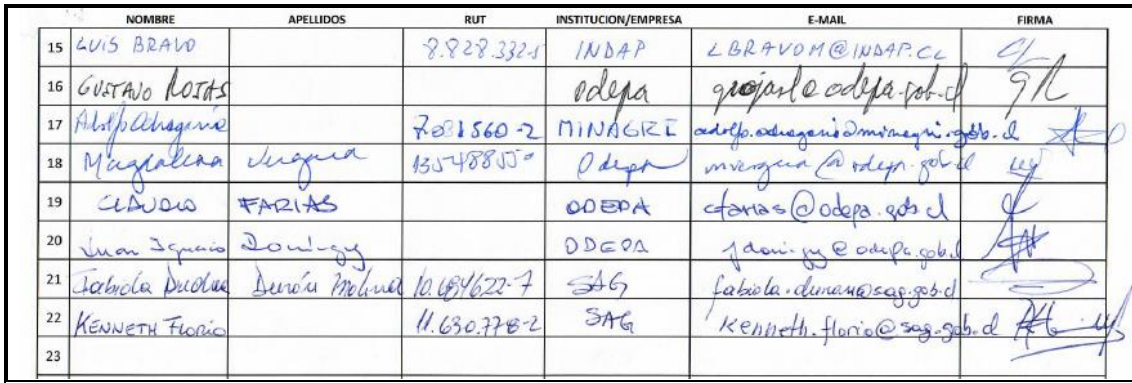 NOMBRE APELLIDOS RUT INSTITUCION/EMPRESA E-MAIL FIRMA
15 LUIS BRAVO 8.828.332-5 INDAP LBRAVOM@INDAP.CL
16 GUSTAVO ROJAS odepa grojasl@odepa.gob.cl GR
17 Adolfo Ochagavía 7081560-2 MINAGRI adolfo.ochagavia@minagri.gob.cl
18 Magdalena Vergara Odepa mvergara@odepa.gob.cl
19 CLAUDIO FARIAS ODEPA cfarias@odepa.gob.cl
20 Juan Ignacio Domínguez ODEPA
21 Fabiola Durán Molina 10.684622-7 SAG fabiola.duran@sag.gob.cl
22 KENNETH FLORIO 11.630.778-2 SAG Kenneth.florio@sag.gob.cl
23